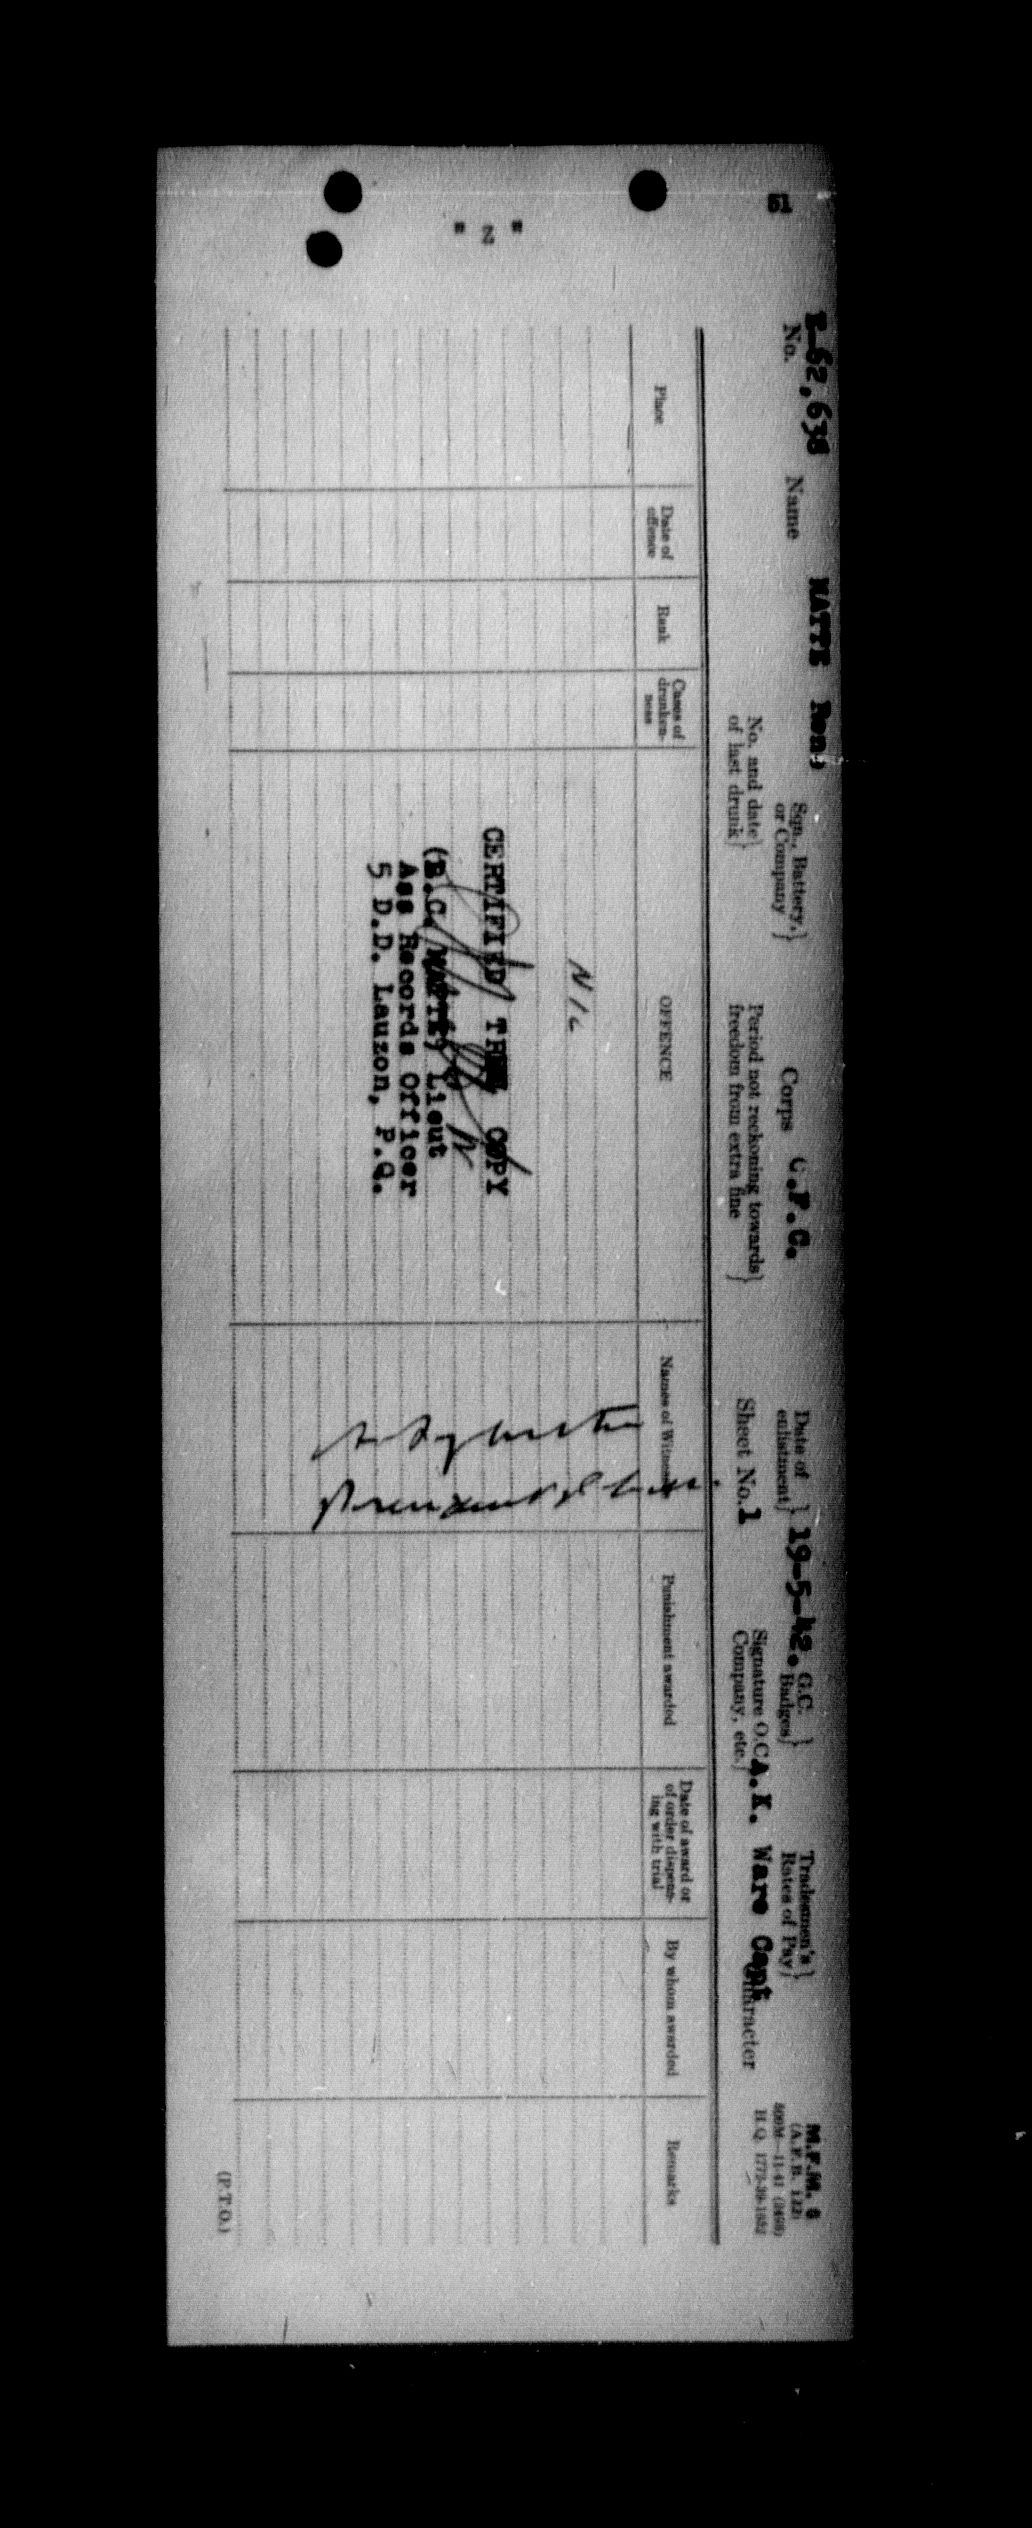 " 2 "
M.F.M. 6
(A.F.B. 122)
No. E-62,638 Name Rene Sqn., Battery, or Company Corps C.F.C. Date of enlistment 19-5-42. G.C. Badges Tradesmen's Rates of Pay
No. and date of last drunk Period not reckoning towards freedom from extra fine Sheet No. 1 Signature O.C. Company, etc. A.K. Ware Capt Character
Place Date of offence Rank Cases of drunken-ness OFFENCE Names of Witnesses Punishment awarded Date of award or of order dispens-ing with trial By whom awarded Remarks
NIL
CERTIFIED TRUE COPY
Lieut
Ass Records Officer
5 D.D. Lauzon, P.Q.
(P.T.O.)